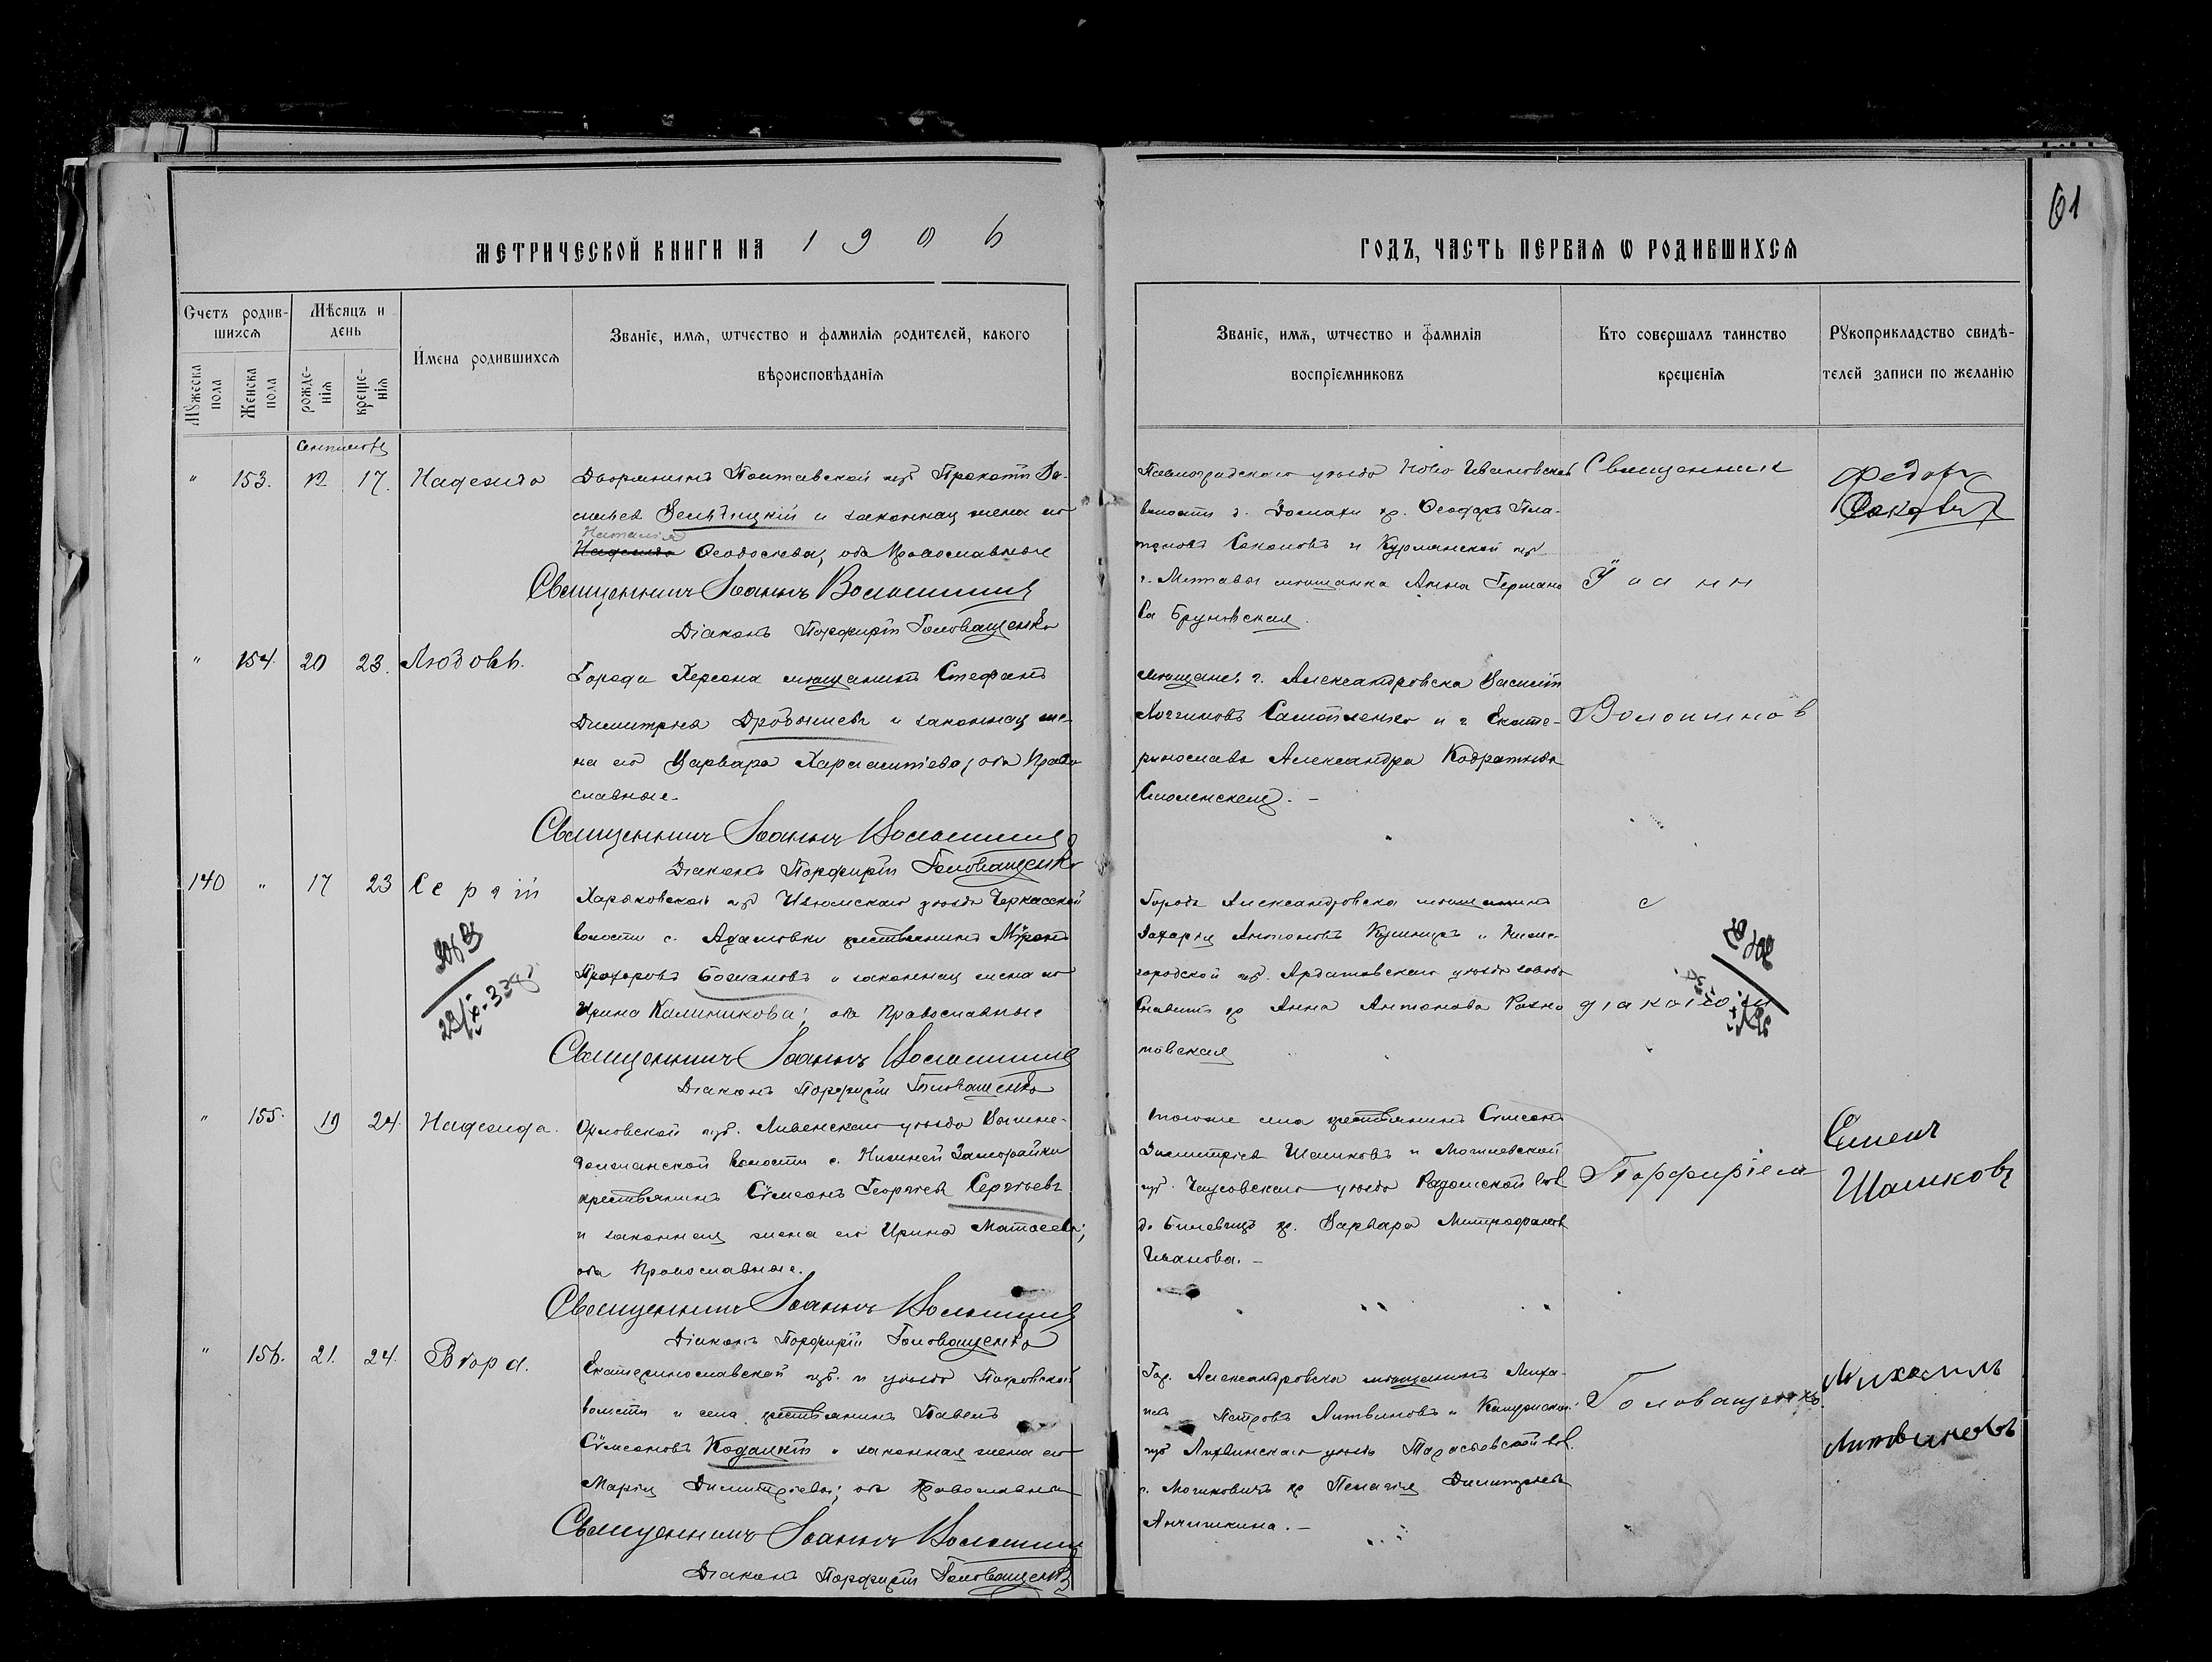 61
МЕТРИЧЕСКОЙ КНИГИ НА 1906
ГОДЪ, ЧАСТЬ ПЕРВАЯ Ѡ РОДИВШИХСЯ
Счетъ родив-
шихся
Мѣсяцъ и
день
Имена родившихся
Званіе, имя, ѡтчество и фамилія родителей, какого
вѣроисповѣданія
Мужеска
пола
Женска
пола
рожде-
нія
креще-
нія
Званіе, имя, ѡтчество и фамилія
воспріемниковъ
Кто совершалъ таинство
крещенія
Рукоприкладство свидѣ-
телей записи по желанію
" 153. 12 17. Надежда
Дворянинъ Полтавской губ Прокопій Ва-
и законная жена его
Наталія
Надежда Ѳеодосіева, оба Православные
Священникъ Іоаннъ Волошинъ
Діаконъ Порфирій Головащенко
Павлоградскаго уѣзда Ново Ивановской
волости д. кр. Ѳеодоръ Пла-
тоновъ Соколовъ и Курлянской губ
г. Митавы мѣщанка Анна Германо
ва Бруновская.
Священник
Іоанн
Федоръ
Соколовъ
" 154. 20 23. Любовь.
Города Херсона мѣщанинъ Стефанъ
Димитріевъ Дробышевъ и законная же-
на его Варвара Харлампіева, оба Право
славные.
Священникъ Іоаннъ Волошинъ
Діаконъ Порфирій Головащенко
мѣщане: г. Александровска Василій
Логгиновъ Самойленко и г. Екате-
ринослава Александра Кодратьева
Смоленская. –
Волошинов
140 " 17 23 Сергій
Харьковской губ Изюмскаго уѣзда Черкасской
волости с. Адамовки крестьянинъ Мѵронъ
Прохоровъ Божановъ и законная жена его
Ирина Калиникова; оба Православные
Священникъ Іоаннъ Волошинъ
Діаконъ Порфирій Головащенко
Города Александровска мѣщанинъ
Захарія Антоновъ и Ниже-
городской губ. Ардатовскаго уѣзда
кр Анна Антонова
товская
с
діакономъ
" 155. 19 24. Надежда.
Орловской губ. Ливенскаго уѣзда Вышне-
должанской волости с. Нижней Заморайки
крестьянинъ Сѵмеонъ Георгіевъ Сергѣевъ
и законная жена его Ирина Матѳеева;
оба Православные.
Священникъ Іоаннъ Волошинъ
Діаконъ Порфирій Головащенко
тогоже села крестьянинъ Сѵмеонъ
Димитріевъ Шашковъ и Могилевской
губ. Чаусовскаго уѣзда Радомской вол
д. кр. Варвара Митрофанов
Иванова. –
Порфиріем
Семен
Шашковъ
" 156. 21. 24. Вѣра.
Екатеринославской губ. и уѣзда Покровской
волости и села крестьянинъ Павелъ
Сѵмеоновъ Кодацкій и законная жена его
Марія Димитріева; оба Православные
Священникъ Іоаннъ Волошинъ
Діаконъ Порфирій Головащенко
Гор. Александровска мѣщанинъ Миха-
илъ Петровъ Литвиновъ и Калужской
губ Лихвинскаго уѣзда вол.
кр Пелагія Димитріева
Анчишкина. –
Головащенко.
Михаилъ
Литвиновъ